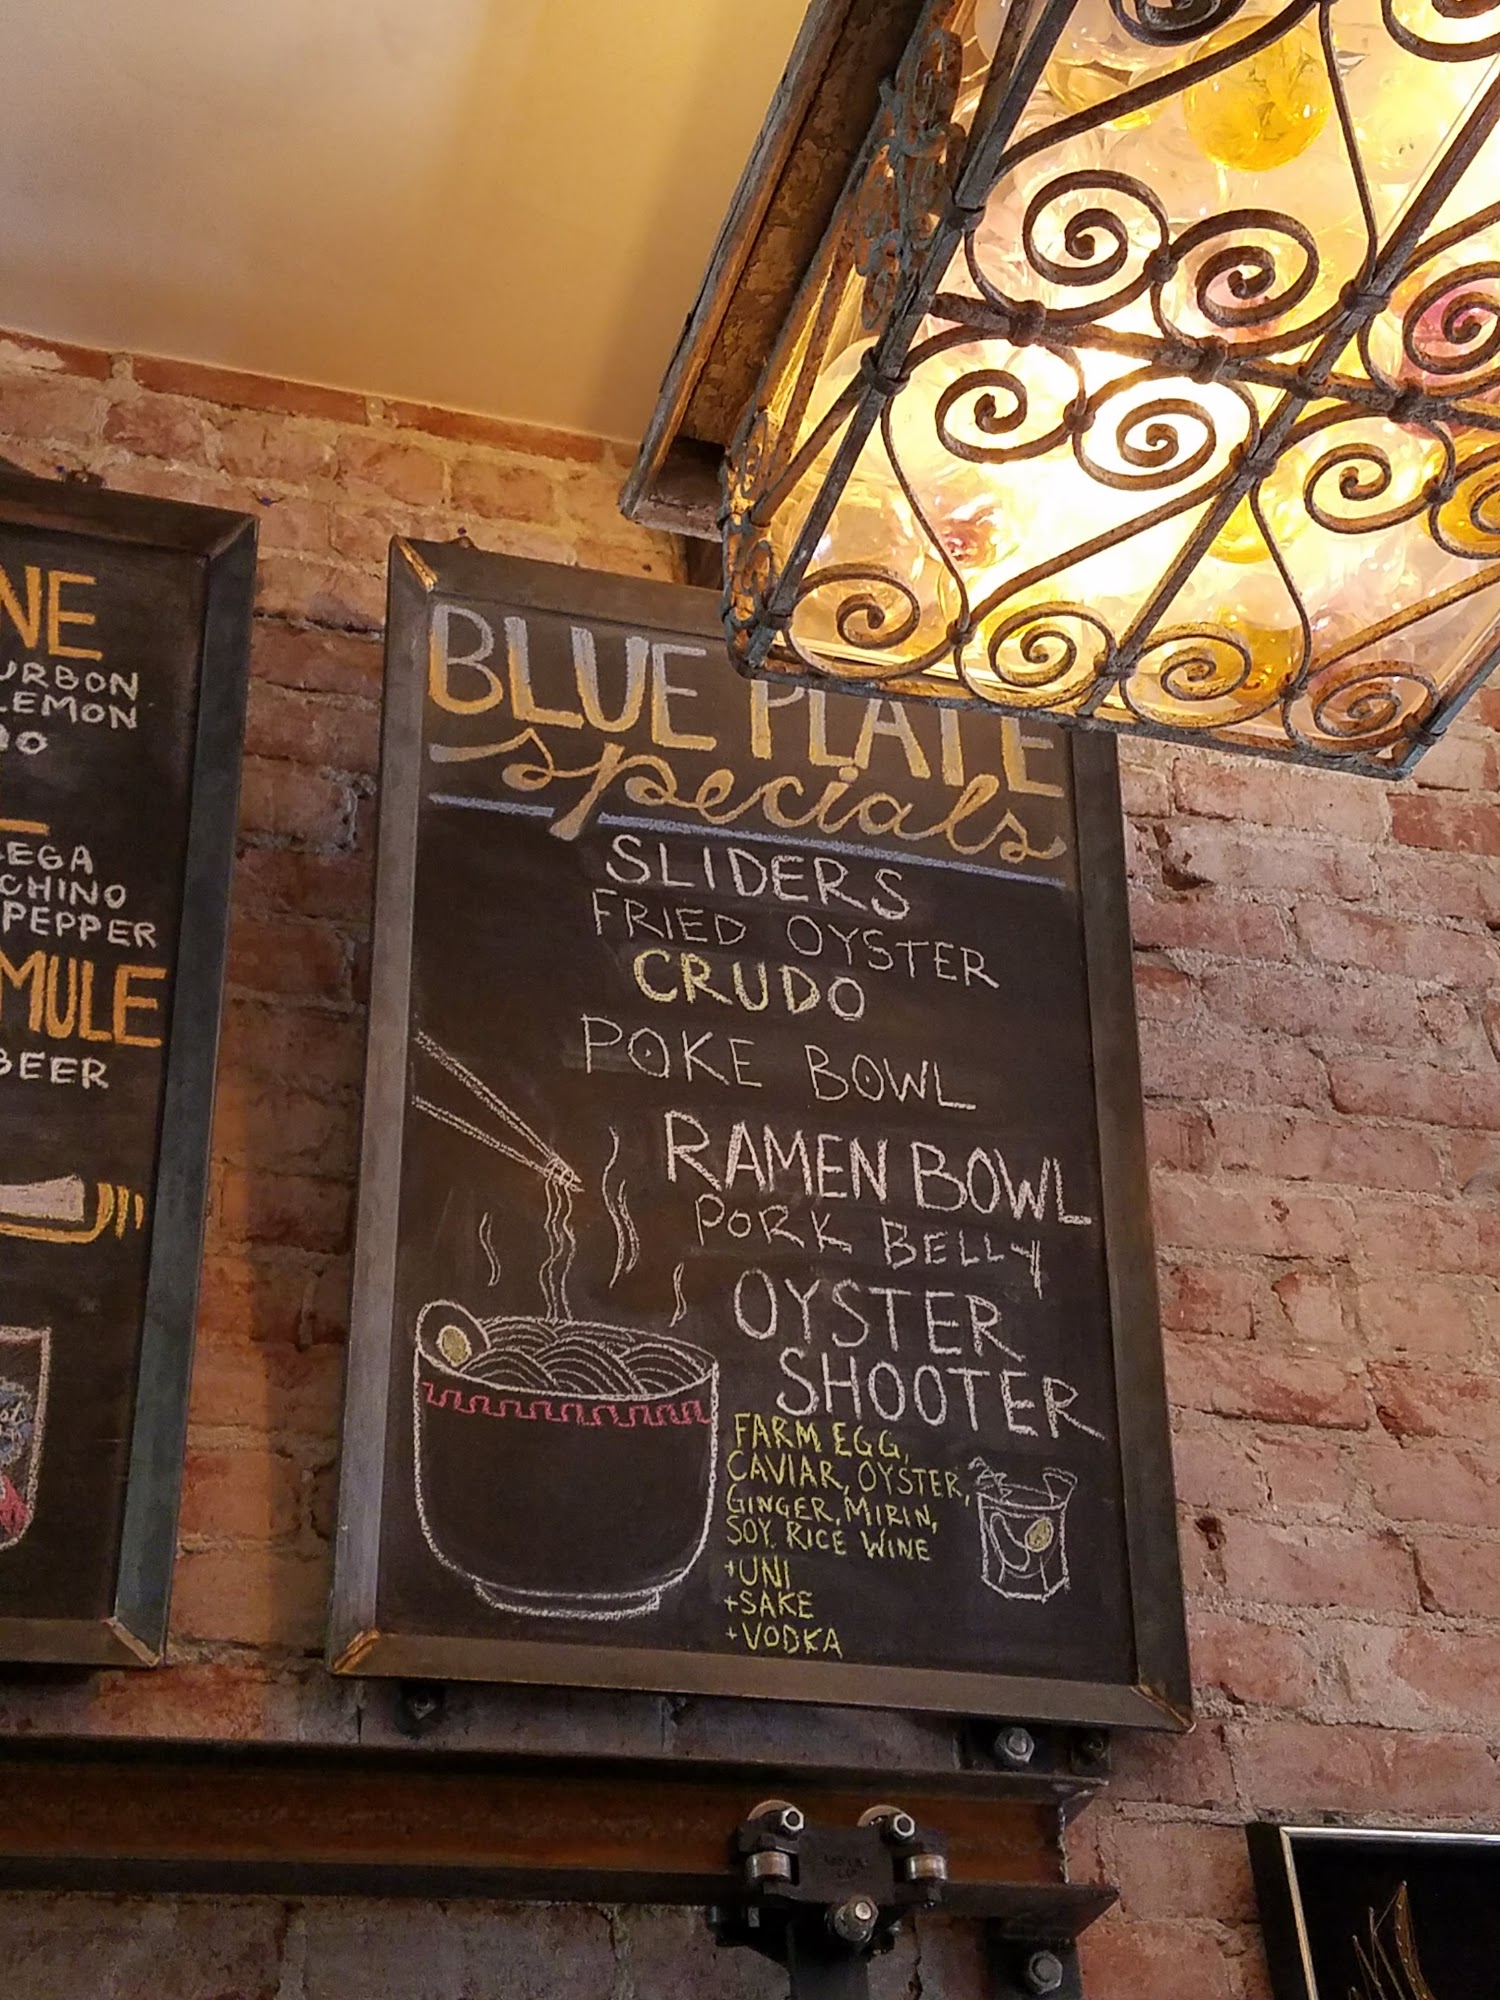 NE
URBON
LEMON
EGA
CHINO
PEPPER
MULE
BEER
BLUE PLATE
specials
SLIDERS
FRIED OYSTER
CRUDO
POKE BOWL
RAMEN BOWL
PORK BELLY
OYSTER
SHOOTER
FARM EGG,
CAVIAR, OYSTER,
GINGER, MIRIN,
SOY, RICE WINE
+UNI
+SAKE
+VODKA